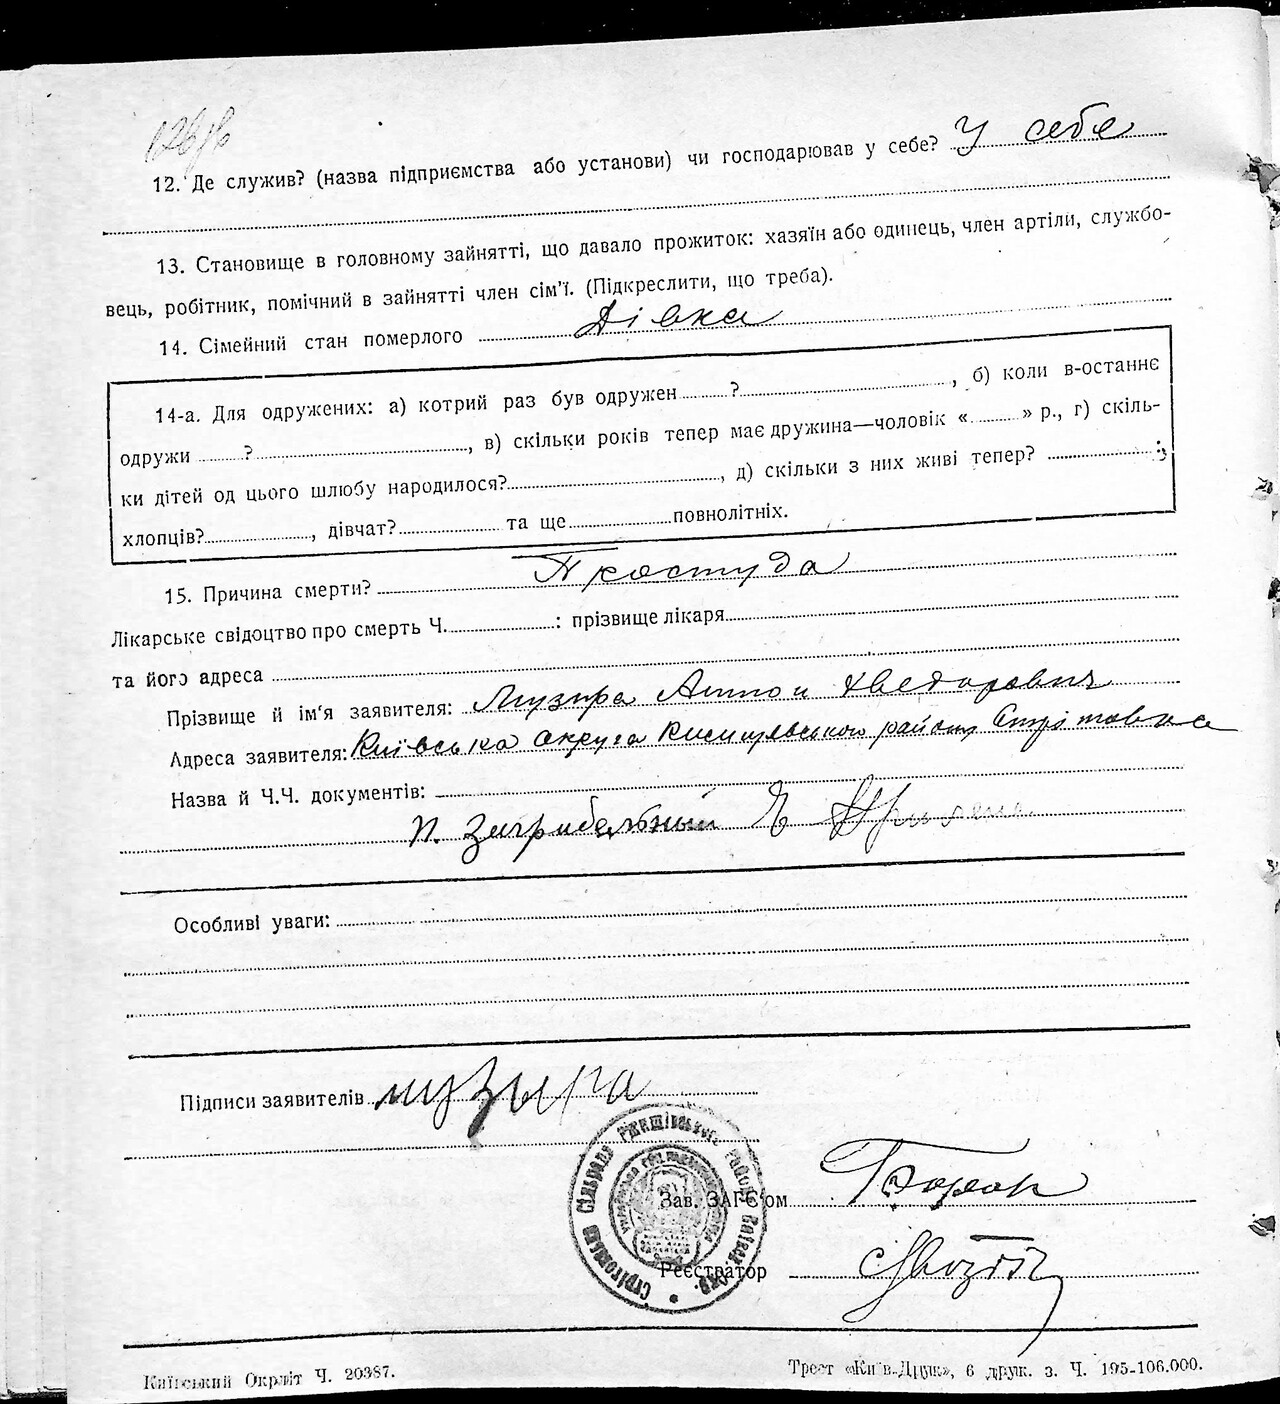 12. Де служив? (назва підприємства або установи) чи господарював у себе? У себе
13. Становище в головному зайнятті, що давало прожиток: хазяїн або одинець, член артіли, службо-
вець, робітник, помічний в зайнятті член сім'ї. (Підкреслити, що треба).
14. Сімейний стан померлого Дівка
14-а. Для одружених: а) котрий раз був одружен ? , б) коли в-останнє
одружи ? , в) скільки років тепер має дружина—чоловік « » р., г) скіль-
ки дітей од цього шлюбу народилося? , д) скільки з них живі тепер? :
хлопців? , дівчат? та ще повнолітніх.
15. Причина смерти? Простуда
Лікарське свідоцтво про смерть Ч. : прізвище лікаря
та його адреса
Прізвище й ім'я заявителя: Музира Антон Хведорович
Адреса заявителя: Київська округа району Стрітовка
Назва й Ч.Ч. документів:
П.
Особливі уваги:
Підписи заявителів музыга
Зав. ЗАГС'ом
Реєстратор
Київський Окрліт Ч. 20387.
Трест «Київ-Друк», 6 друк. з. Ч. 195-106.000.